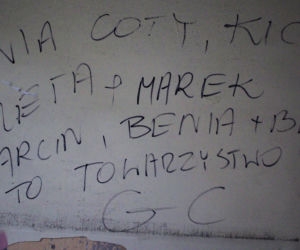 NIA COTY, KIC
ETA + MAREK
ARCIN, BENIA + B
TO TOWARZYSTWO
G C